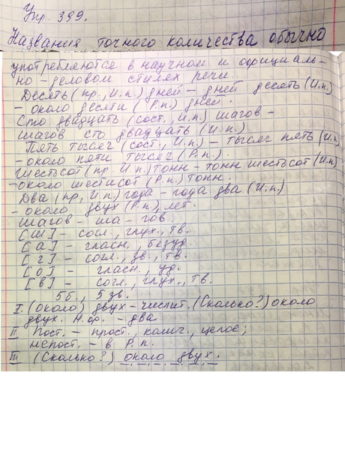 Упр. 399.
Названия точного количества обычно
употребляются в научном и официаль-
но-деловом стилях речи.
Десять (пр., И.п.) дней - дней десять (И.п.)
- около десяти (Р.п.) дней.
Сто двадцать (сост., И.п.) шагов -
шагов сто двадцать (И.п.)
Пять тысяч (сост., И.п.) - тысяч пять (И.п.)
- около пяти тысяч (Р.п.)
Шестьсот (пр., И.п.) тонн - тонн шестьсот (И.п.)
- около шестисот (Р.п.) тонн.
Два (пр., И.п.) года - года два (И.п.)
- около двух (Р.п.) лет.
Шагов - ша - гов.
[ш] - согл., глух., тв.
[а] - гласн., безуд.
[г] - согл., зв., тв.
[о] - гласн., уд.
[в] - согл., глух., тв.
5 б., 5 зв.
I. (Около) двух - числит. (Сколько?) около
двух. Н.ф. - два
II Пост. - прост., колич., целое;
непост. - в Р.п.
III (Сколько?) около двух.